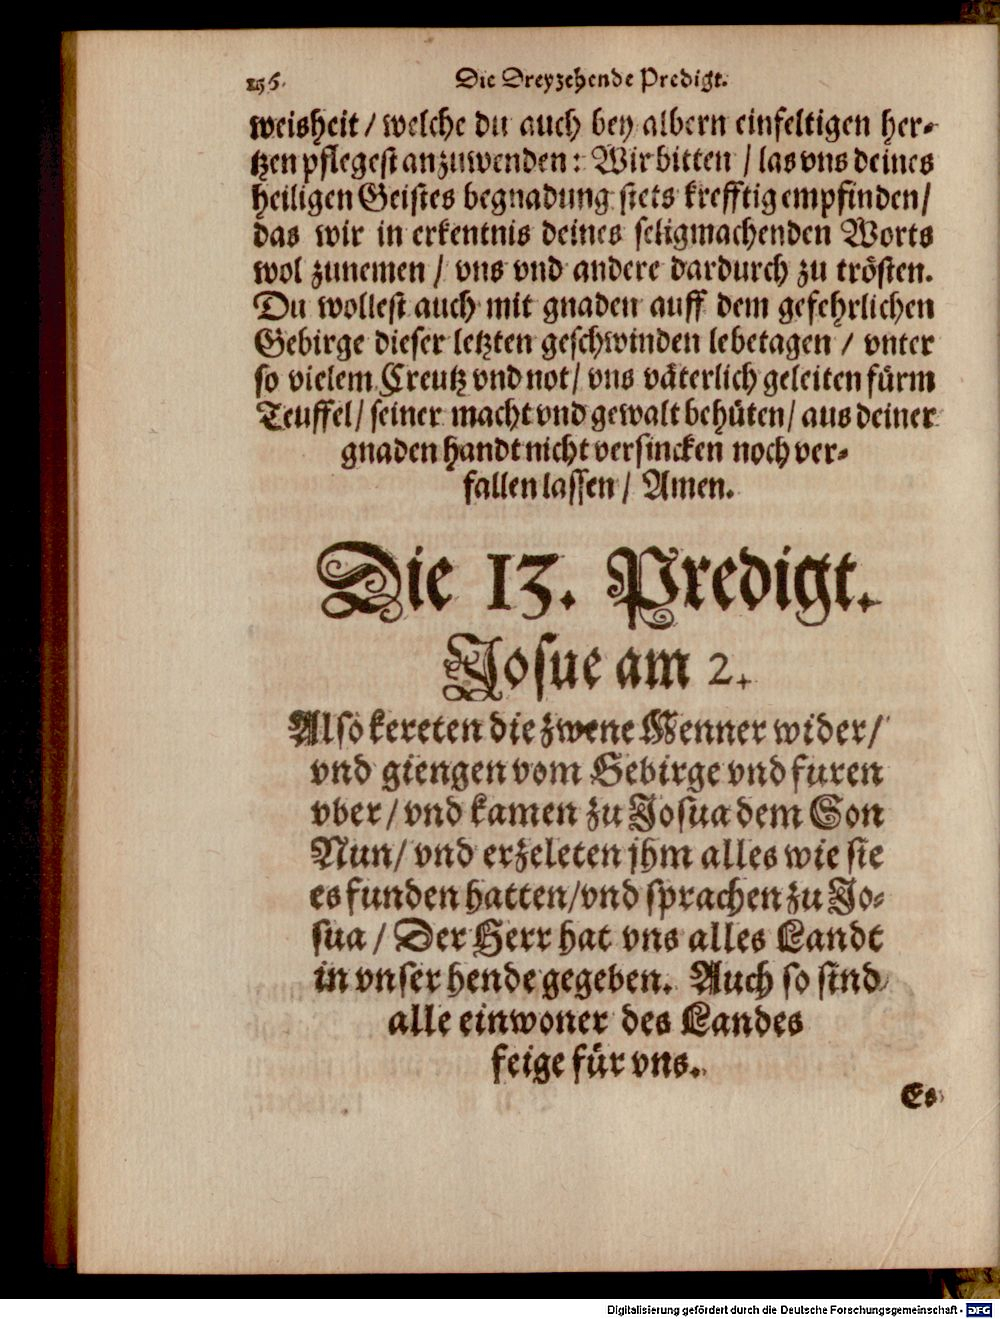 156. Die Dreyzehende Predigt.
weisheit / welche du auch bey albern einfeltigen her-
tzen pflegest anzuwenden: Wir bitten / las vns deines
heiligen Geistes begnadung stets krefftig empfinden /
das wir in erkentnis deines seligmachenden Worts
wol zunemen / vns vnd andere dardurch zu trösten.
Du wollest auch mit gnaden auff dem gefehrlichen
Gebirge dieser letzten geschwinden lebetagen / vnter
so vielem Creutz vnd not / vns väterlich geleiten fürm
Teuffel / seiner macht vnd gewalt behüten / aus deiner
gnaden handt nicht versincken noch ver-
fallen lassen / Amen.
Die 13. Predigt.
Josue am 2.
Also kereten die zwene Menner wider /
vnd giengen vom Gebirge vnd furen
vber / vnd kamen zu Josua dem Son
Nun / vnd erzeleten jhm alles wie sie
es funden hatten / vnd sprachen zu Jo-
sua / Der Herr hat vns alles Landt
in vnser hende gegeben. Auch so sind
alle einwoner des Landes
feige für vns.
Es
Digitalisierung gefördert durch die Deutsche Forschungsgemeinschaft - DFG